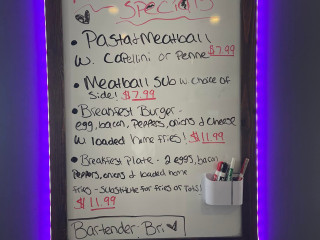 Specials
• Pasta & Meatball
w. Capellini or Penne $7.99
• Meatball Sub w choice of
Side! $7.99
• Breakfast Burger -
egg, bacon, Peppers, onions & cheese
w loaded home fries! $11.99
• Breakfast Plate - 2 eggs, bacon
Peppers, onions & loaded home
fries - Substitute for fries or Tots!
$11.99
Bartender: Bri